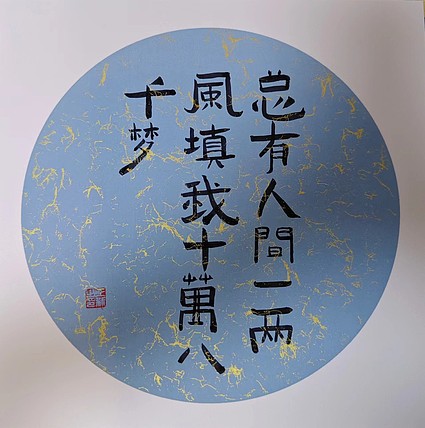 总有人間一两
風填我十萬八
千梦